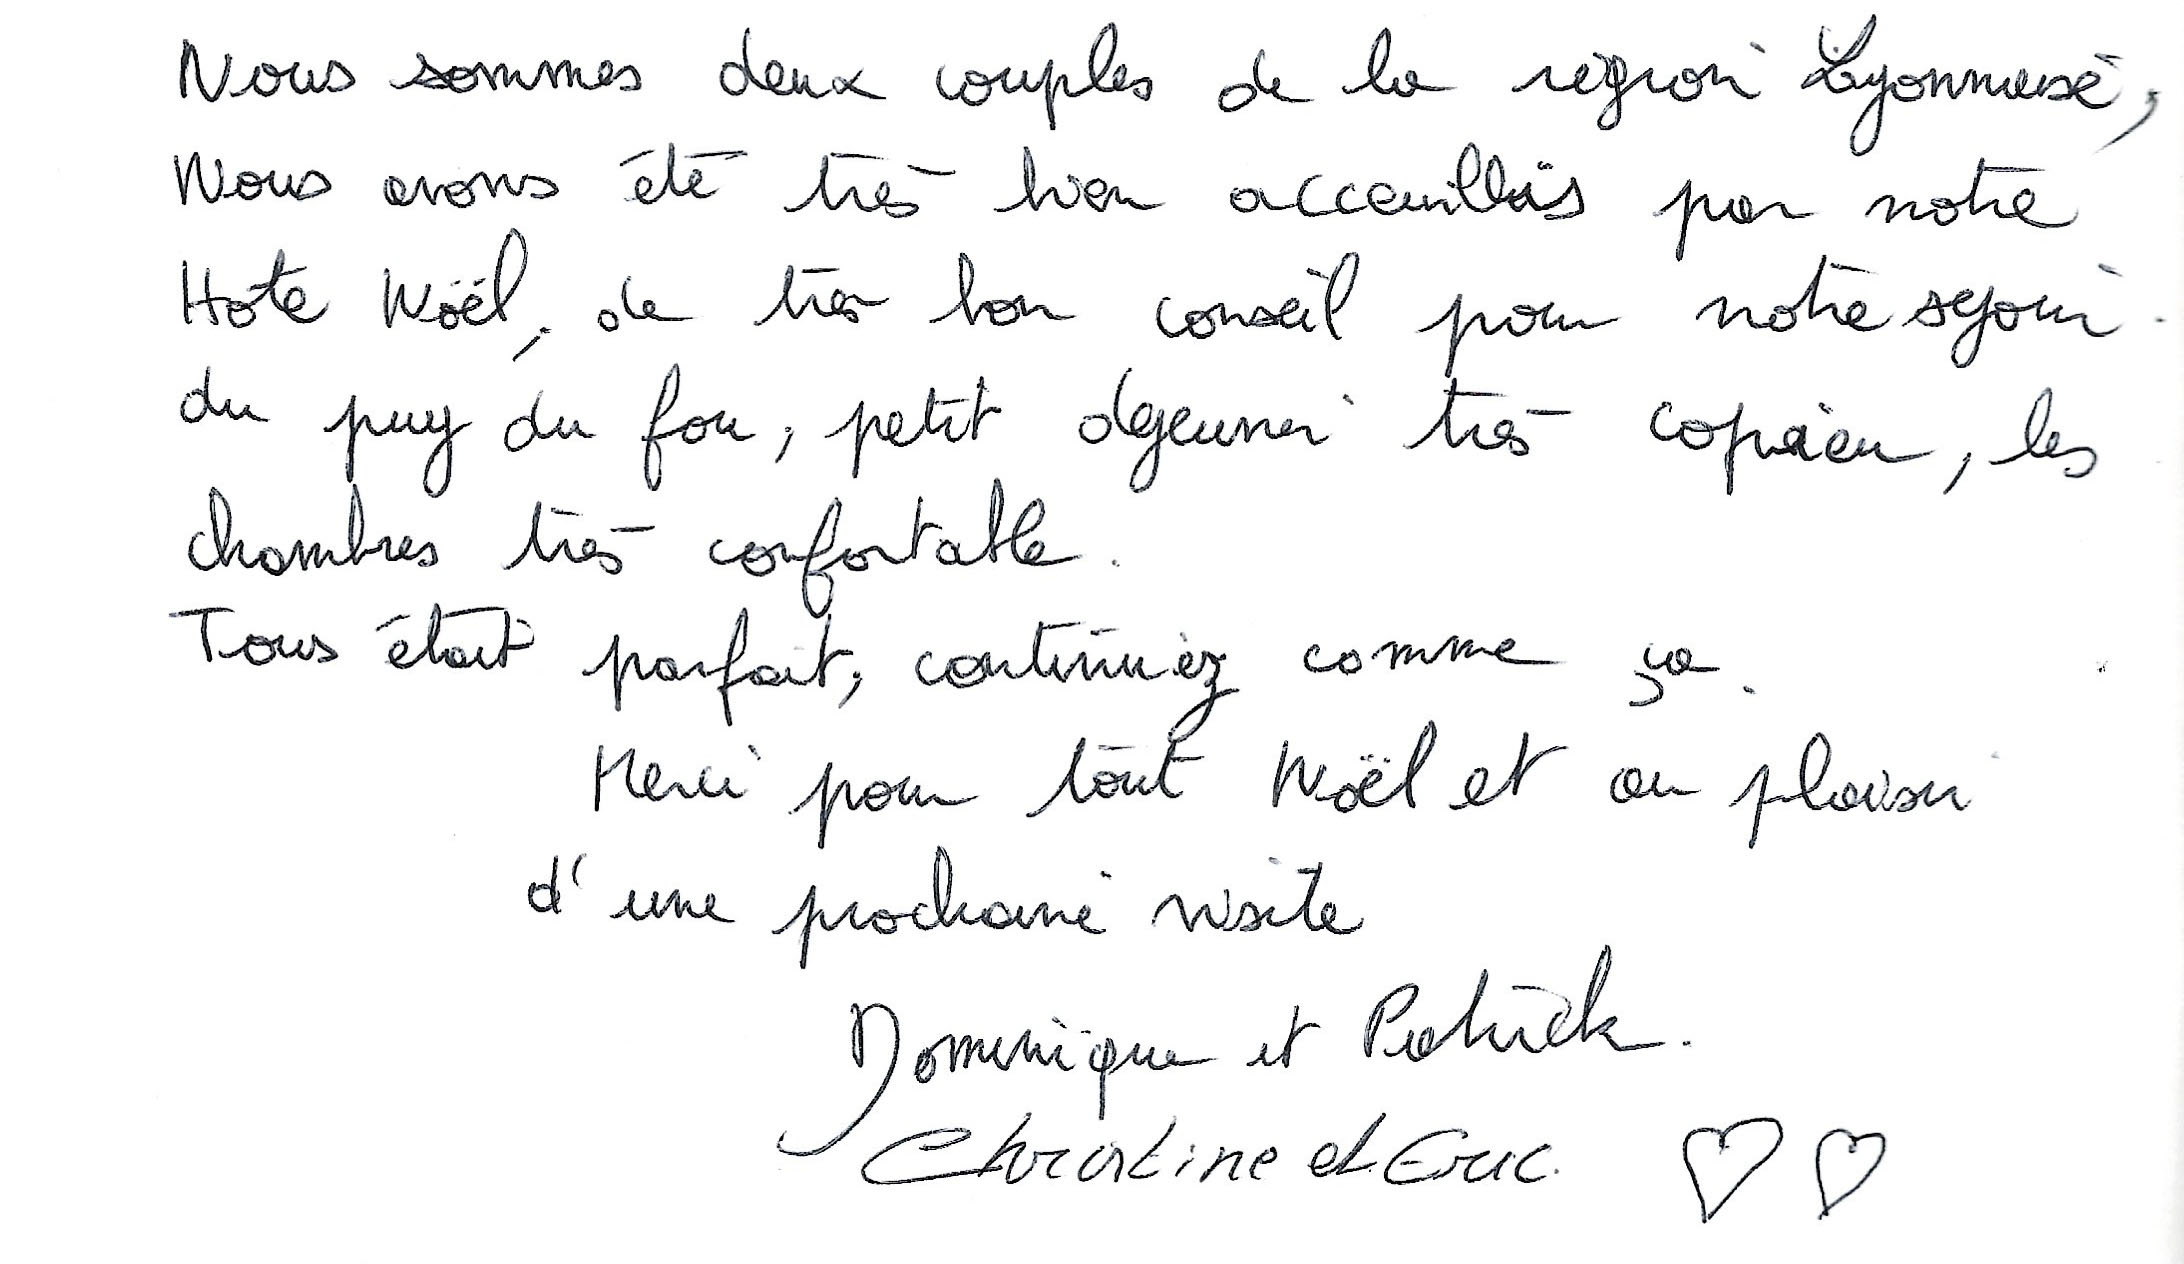 Nous sommes deux couples de la région Lyonnaise,
Nous avons été très bien acceuillis par notre
Hote Noël, de très bon conseil pour notre séjour
du puy du fou, petit déjeuner très copieu, les
chambres très confortable.
Tous était parfait, continuez comme ça.
Merci pour tout Noël et au plaisir
d'une prochaine visite
Dominique et Patrick.
Christine et Eric.